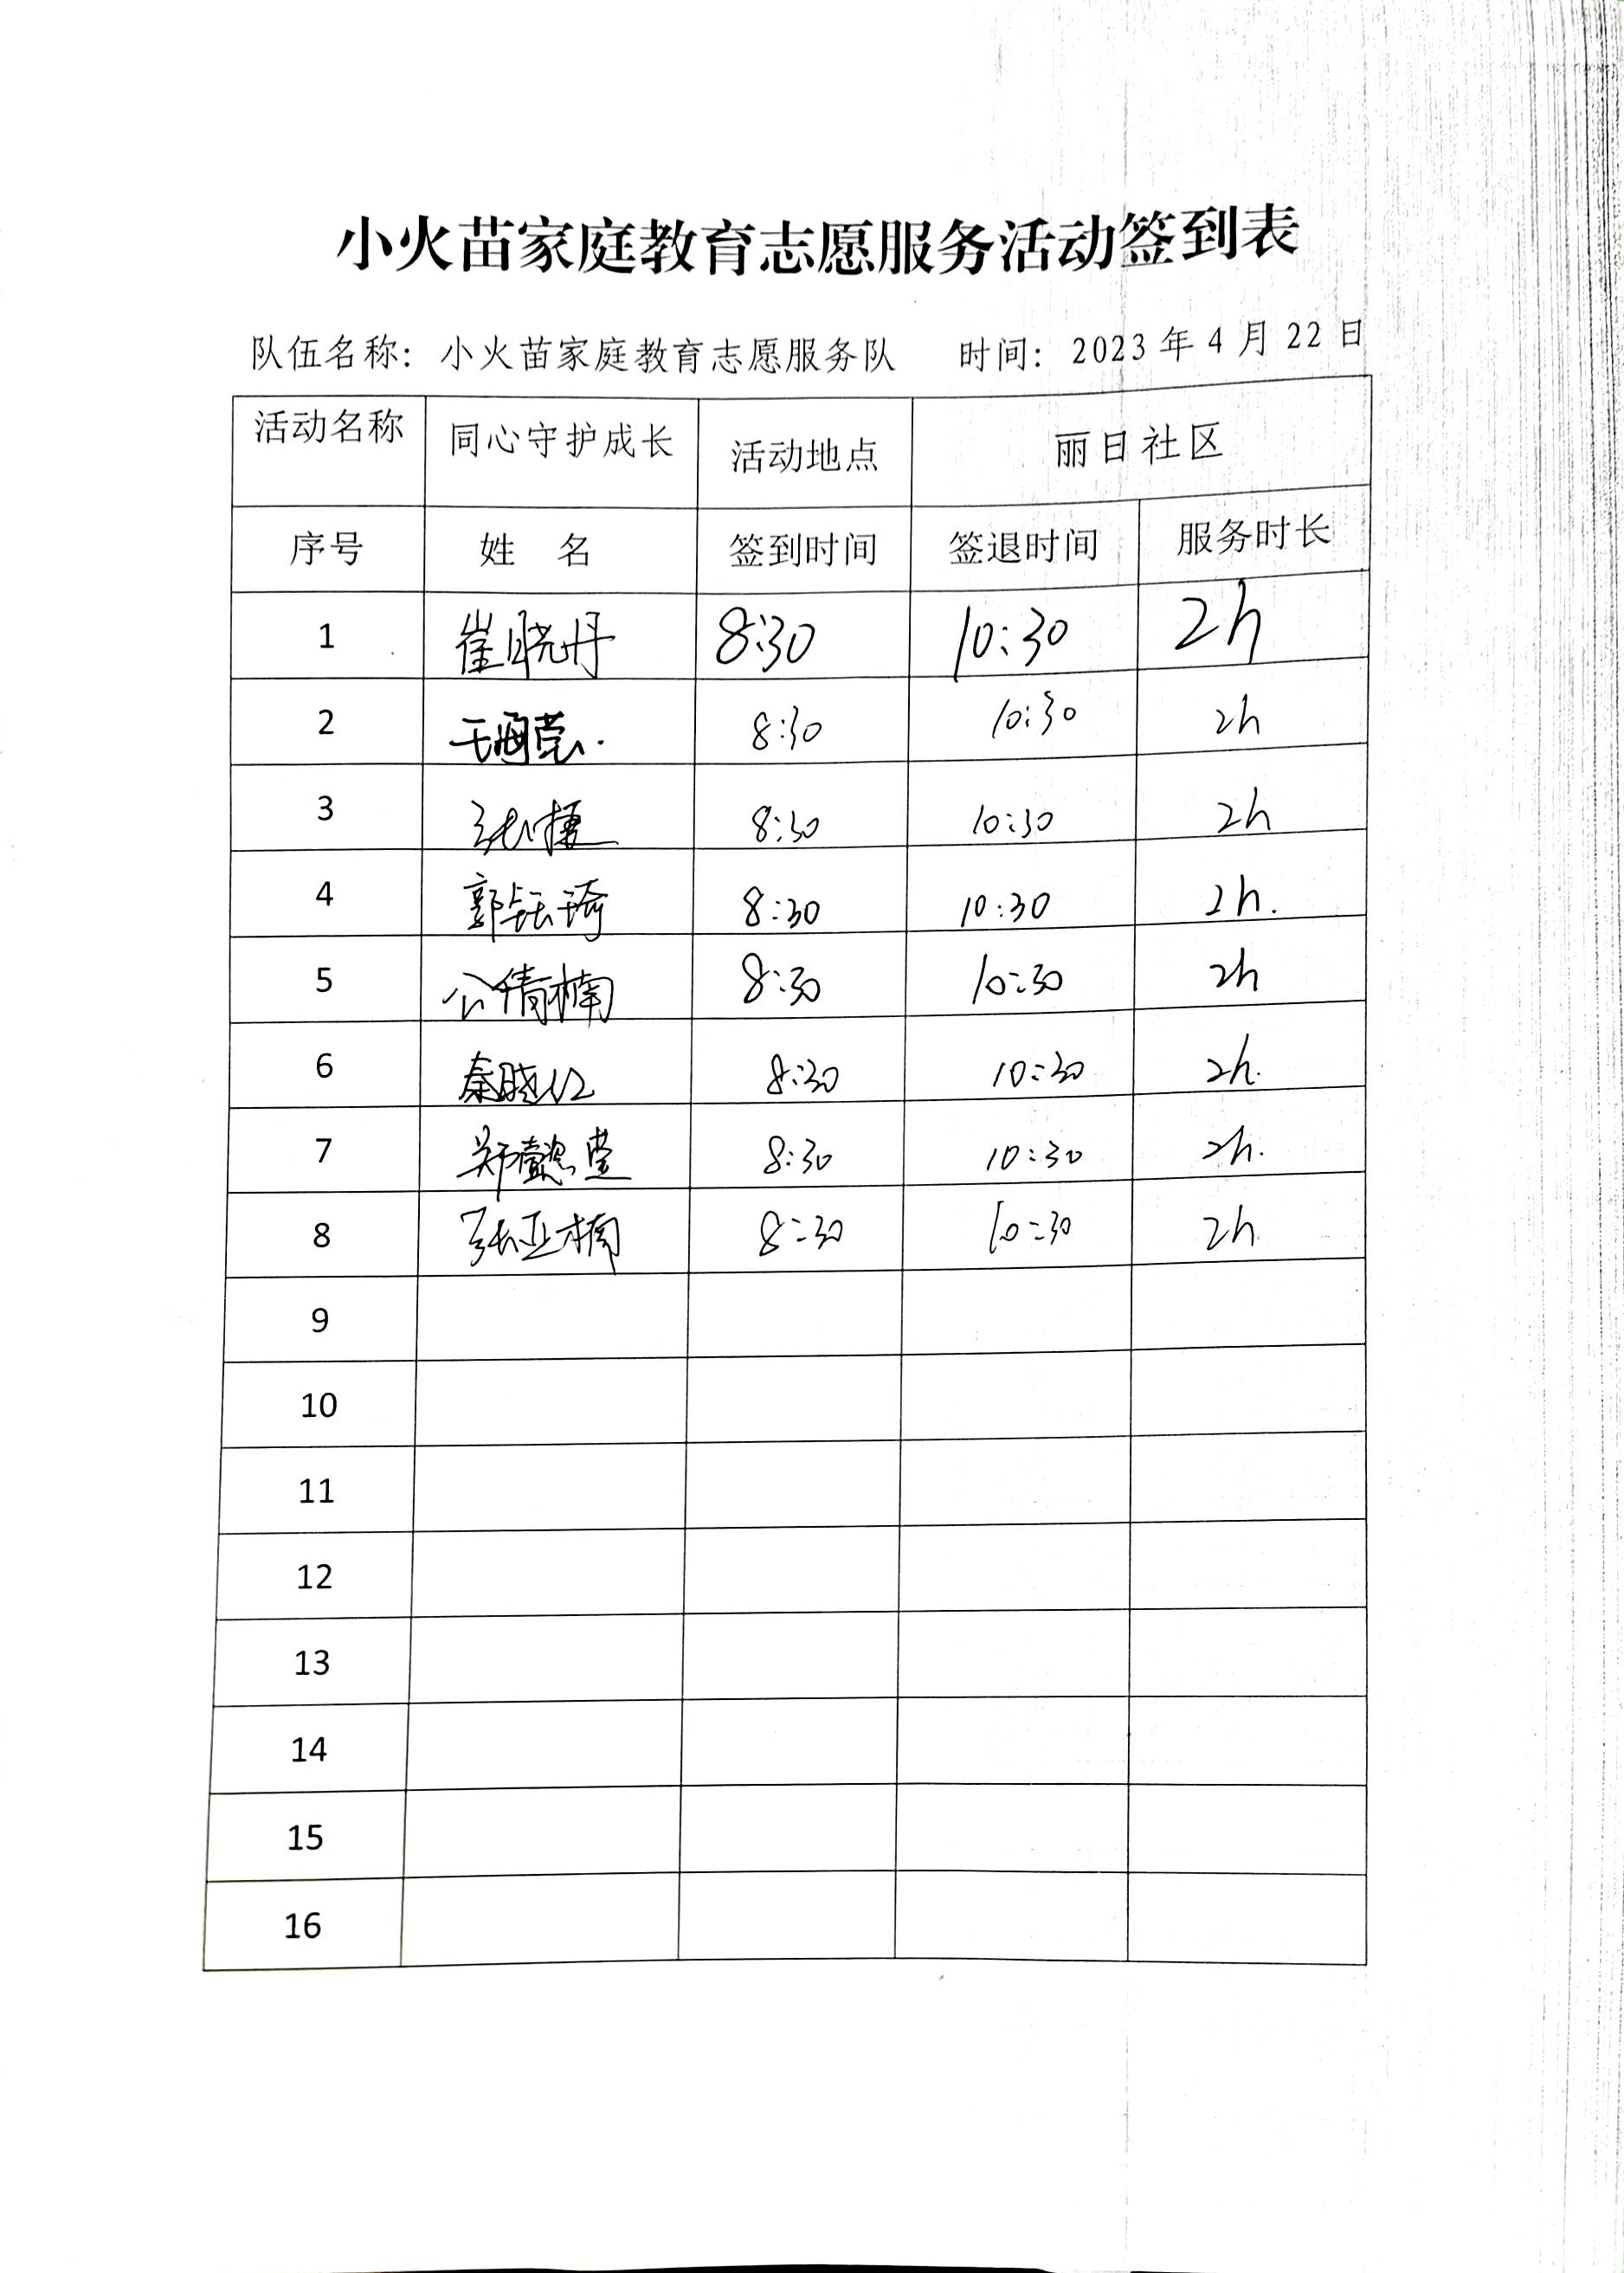 小火苗家庭教育志愿服务活动签到表
队伍名称：小火苗家庭教育志愿服务队 时间：2023年4月22日
活动名称 同心守护成长 活动地点 丽日社区
序号 姓 名 签到时间 签退时间 服务时长
1 崔晓丹 8:30 10:30 2h
2 8:30 10:30 2h
3 张捷 8:30 10:30 2h
4 郭钰琦 8:30 10:30 2h.
5 公倩楠 8:30 10:30 2h
6 秦晓红 8:30 10:30 2h.
7 郑懿 8:30 10:30 2h.
8 张亚楠 8:30 10:30 2h
9
10
11
12
13
14
15
16